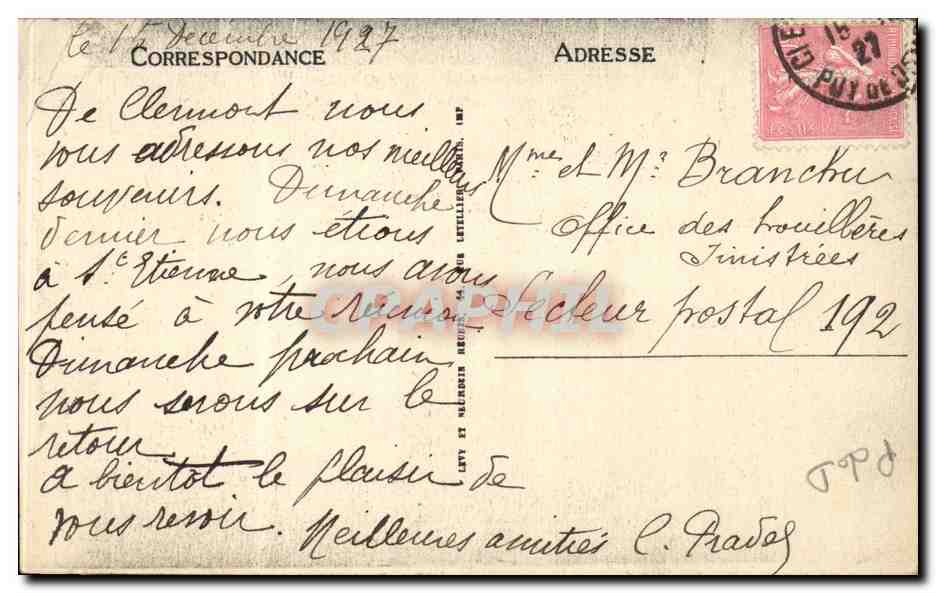 le 15 Décembre 1927
CORRESPONDANCE
ADRESSE
De Clermont nous
vous adressons nos meilleurs
souvenirs. Dimanche
dernier nous étions
à St Etienne, nous avons
pensé à votre réunion
Dimanche prochain
nous serons sur le
retour
a bientot le plaisir de
vous revoir. Meilleures amitiés C. Pradel
LEVY ET NEURDEIN REUNIS, 44, RUE LETELLIER, PARIS. IMP
Mme et Mr Branchu
Office des houillères
Sinistrées
Secteur postal 192
15
27
PUY DE DOME
P. de D
CPAPHIL